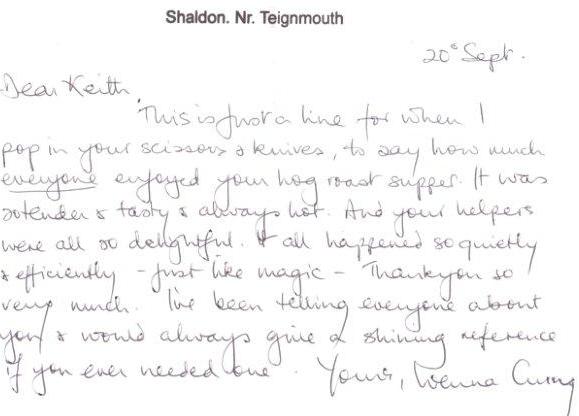 Shaldon. Nr. Teignmouth
20° Sept.
Dear Keith,
This is just a line for when I
pop in your scissors & knives, to say how much
everyone enjoyed your hog roast supper. It was
so tender & tasty & always hot. And your helpers
were all so delightful. It all happened so quietly
& efficiently - just like magic - Thankyou so
very much. I've been telling everyone about
you & would always give a shining reference
if you ever needed one. Yours,